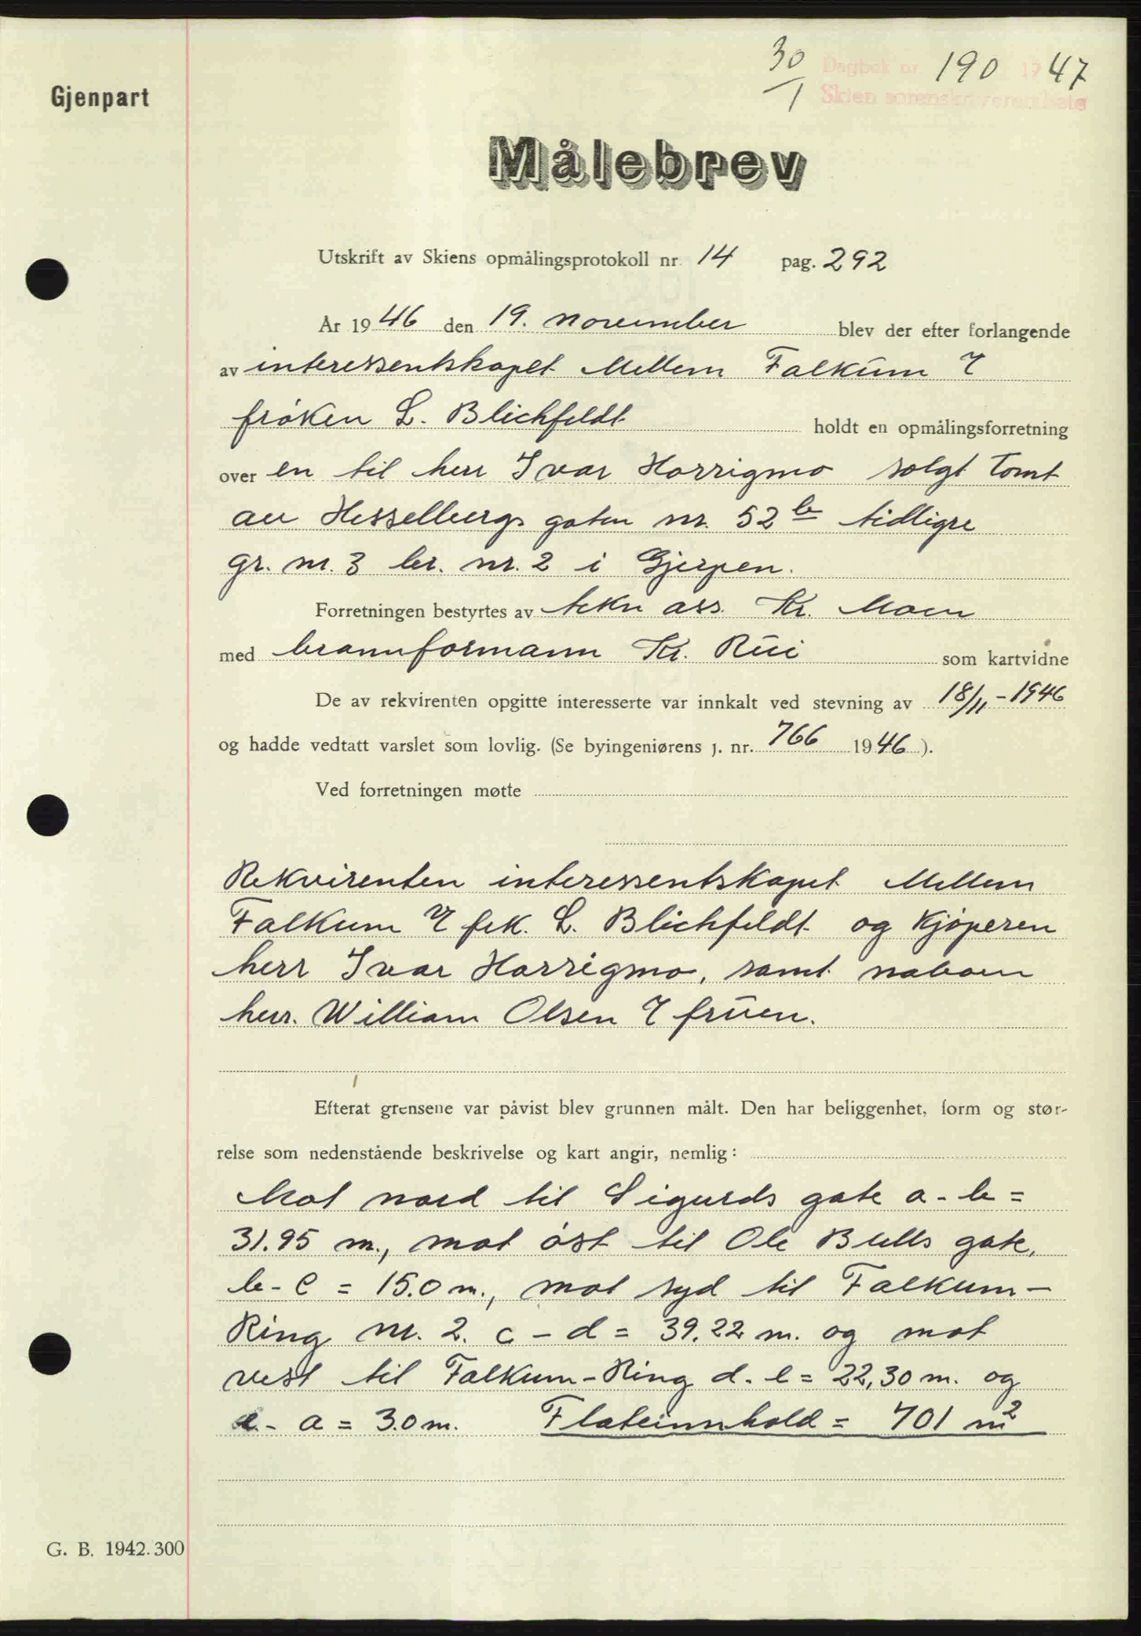 30/1 Dagbok nr. 190 1947
Skien sorenskriverembete
Gjenpart
Målebrev
Utskrift av Skiens opmålingsprotokoll nr. 14 pag. 292
År 1946 den 19. november blev der efter forlangende
av interessentskapet Mellem Falkum V
frøken L. Blichfeldt holdt en opmålingsforretning
over en til herr Ivar Horrigmo solgt tomt
av Hesselbergs gaten nr. 52 b tidligre
gr. nr. 3 br. nr. 2 i Gjerpen.
Forretningen bestyrtes av tekn ass. Kr. Moen
med brannformann Kr. Rui som kartvidne
De av rekvirenten opgitte interesserte var innkalt ved stevning av 18/11-1946
og hadde vedtatt varslet som lovlig. (Se byingeniørens j. nr. 766 1946).
Ved forretningen møtte
Rekvirenten interessentskapet Mellem
Falkum V frk. L. Blichfeldt og kjøperen
herr Ivar Horrigmo, samt naboen
herr. William Olsen V fruen.
Efterat grensene var påvist blev grunnen målt. Den har beliggenhet, form og stør-
relse som nedenstående beskrivelse og kart angir, nemlig:
Mot nord til Sigurds gate a-b =
31.95 m., mot øst til Ole Bulls gate,
b-c = 15.0 m., mot syd til Falkum-
Ring nr. 2. c-d = 39.22 m. og mot
vest til Falkum-Ring d-e = 22,30 m. og
e-a = 3.0 m. Flateinnhold = 701 m2
G. B. 1942.300